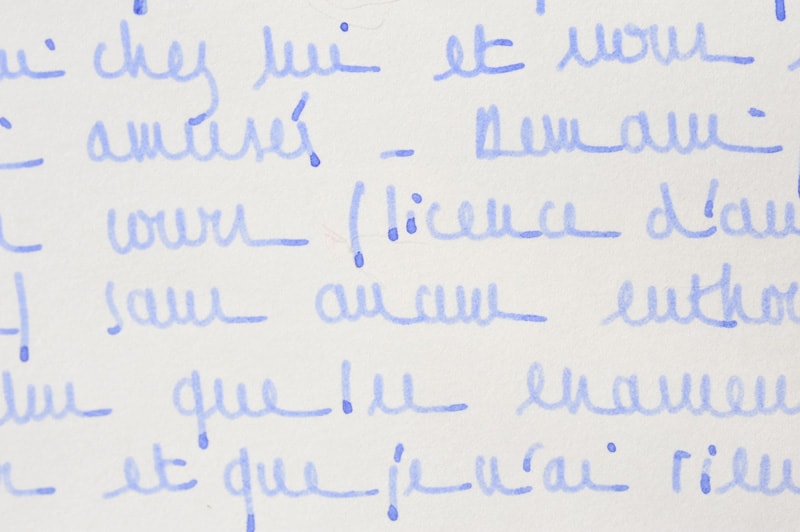 chez lui et nous
amusés - Demain
cours (licence d'an
) sans aucun enthou
que les examens
et que je n'ai rien